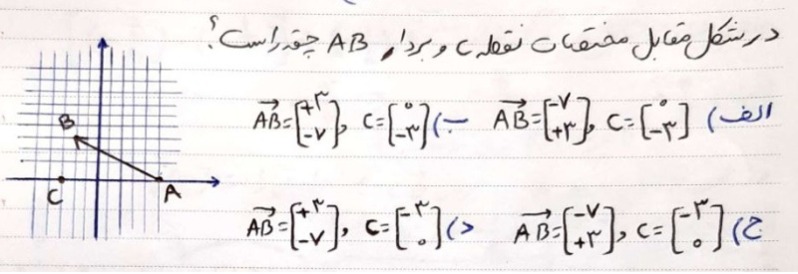 در شکل مقابل مختصات نقطه C و بردار AB چقدر است؟
الف) C=[۰ -۳] , AB=[-۷ +۳]
ب) C=[۰ -۳] , AB=[+۳ -۷]
ج) C=[-۳ ۰] , AB=[-۷ +۳]
د) C=[-۳ ۰] , AB=[+۳ -۷]
B
C
A